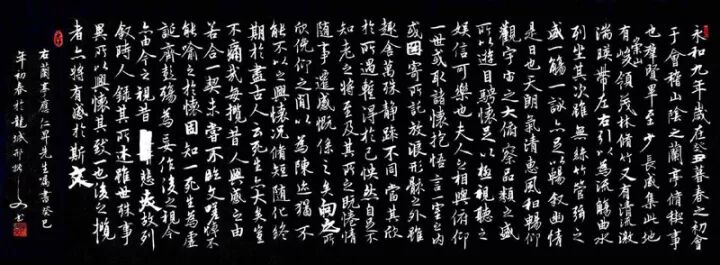 永和九年歲在癸丑暮春之初會
于會稽山陰之蘭亭脩稧事
也群賢畢至少長咸集此地
有崇山峻領茂林脩竹又有清流激
湍暎帶左右引以為流觴曲水
列坐其次雖無絲竹管絃之
盛一觴一詠亦足以暢敘幽情
是日也天朗氣清惠風和暢仰
觀宇宙之大俯察品類之盛
所以遊目騁懷足以極視聽之
娛信可樂也夫人之相與俯仰
一世或取諸懷抱悟言一室之內
或因寄所託放浪形骸之外雖
趣舍萬殊靜躁不同當其欣
於所遇暫得於己怏然自足不
知老之將至及其所之既惓情
隨事遷感慨係之矣向之所
欣俛仰之間以為陳迹猶不
能不以之興懷況脩短隨化終
期於盡古人云死生亦大矣豈
不痛哉每攬昔人興感之由
若合一契未嘗不臨文嗟悼不
能喻之於懷固知一死生為虛
誕齊彭殤為妄作後之視今
亦由今之視昔悲夫故列
敘時人錄其所述雖世殊事
異所以興懷其致一也後之攬
者亦將有感於斯文
右蘭亭應仁昇先生屬書癸巳
年初春於龍城邢書